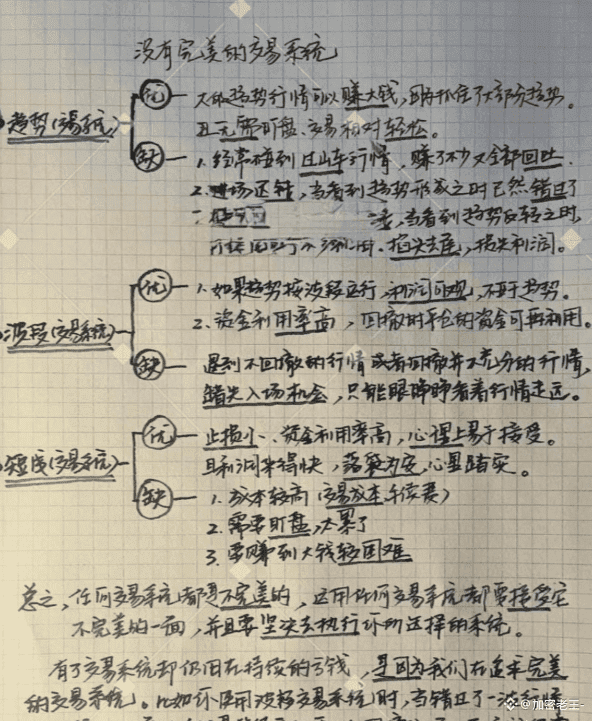 没有完美的交易系统
趋势交易系统
优
大的趋势行情可以赚大钱，且能抓住了大部分趋势。
且无需盯盘、交易相对轻松。
缺
1. 经常碰到过山车行情，赚了不少又全部回吐.
2. 进场迟钝，当看到趋势形成之时已然错过了
，当看到趋势反转之时,
掐头去尾，损失利润。
波段交易系统
优
1. 如果趋势按波段运行，利润可观，不亚于趋势。
2. 资金利用率高，回撤时平仓的资金可再利用。
缺
遇到不回撤的行情或者回撤并不充分的行情，
错失入场机会，只能眼睁睁看着行情走远。
短线交易系统
优
止损小、资金利用率高，心理上易于接受。
且利润来得快，落袋为安，心里踏实。
缺
1. 成本较高（交易成本，手续费）
2. 需要盯盘，太累了
3. 要赚到大钱较困难
总之，任何交易系统都是不完美的，运用任何交易系统都要接受它
不完美的一面，并且要坚决去执行你所选择的系统。
有了交易系统却仍旧在持续的亏钱，是因为我们在追求完美
的交易系统。比如你使用波段交易系统时，当错过了一波行情
@加密老王-